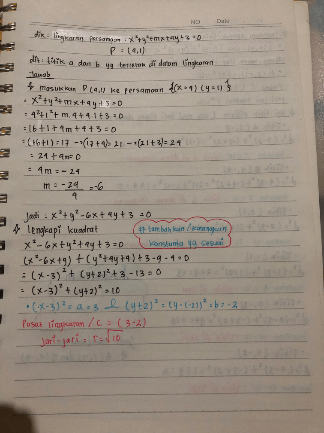 NO Date
dik = lingkaran persamaan : x²+y²+mx+4y+3=0
P = (4,1)
dit : titik a dan b yg terletak di dalam lingkaran
Jawab
↳ masukan P(4,1) ke persamaan {(x=4) (y=1)}
= x²+y²+mx+4y+3=0
= 4²+1²+m.4+4.1+3=0
= 16+1+4m+4+3=0
= (16+1)=17 → (17+4)=21 → (21+3)=24
= 24+4m=0
= 4m=-24
m = -24/4 = -6
Jadi : x²+y²-6x+4y+3=0
↳ lengkapi kuadrat
x²-6x+y²+4y+3=0
* tambahkan / kurangkan
konstanta yg sesuai
(x²-6x+9)+(y²+4y+4)+3-9-4=0
= (x-3)²+(y+2)²+3-13=0
= (x-3)²+(y+2)²=10
* (x-3)²=a=3 & (y+2)²=(y-(-2))²=b=-2
Pusat lingkaran / C = (3-2)
Jari-jari = r=√10